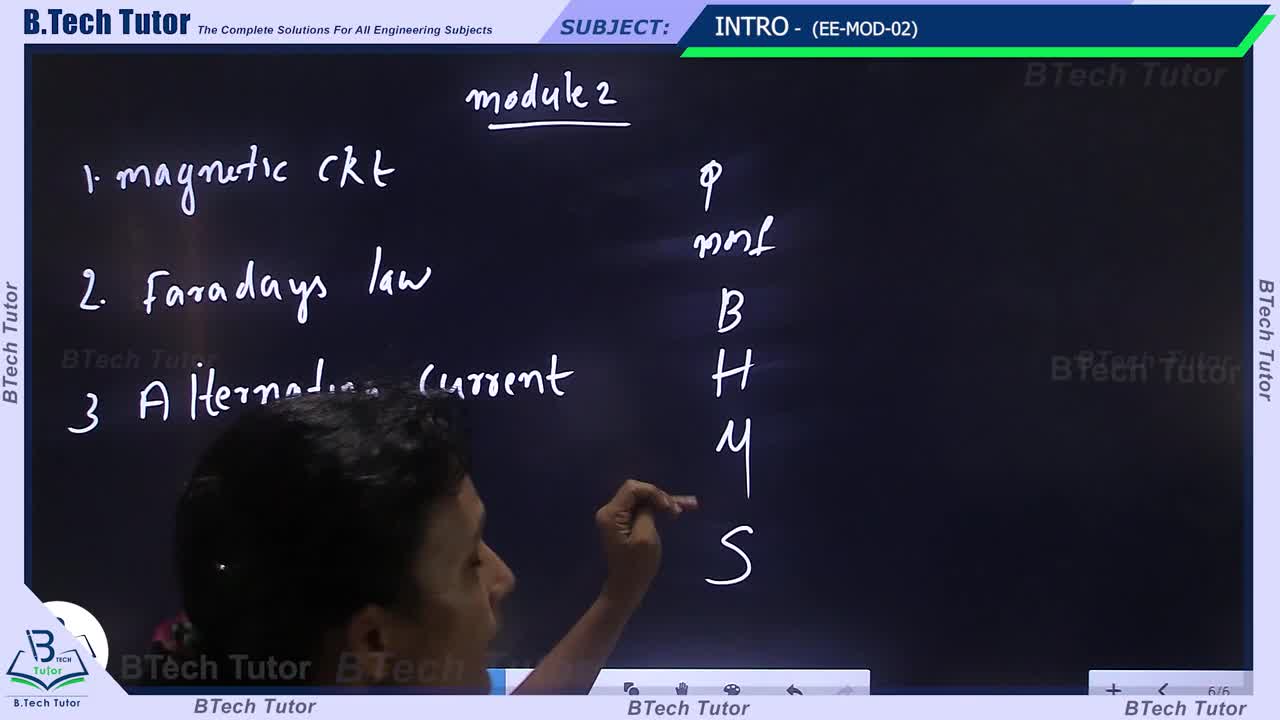 B.Tech Tutor The Complete Solutions For All Engineering Subjects
SUBJECT: INTRO - (EE-MOD-02)
BTech Tutor
module 2
1. magnetic ckt
2. Faradays law
3 Alternating current
φ
mmf
B
H
μ
S
BTech Tutor
BTech Tutor
BTech Tutor
BTech Tutor
BTech Tutor
BTech Tutor
BTech Tutor
BTech Tutor
B
TECH
Tutor
B.Tech Tutor
6/6
BTech Tutor
BTech Tutor
BTech Tutor